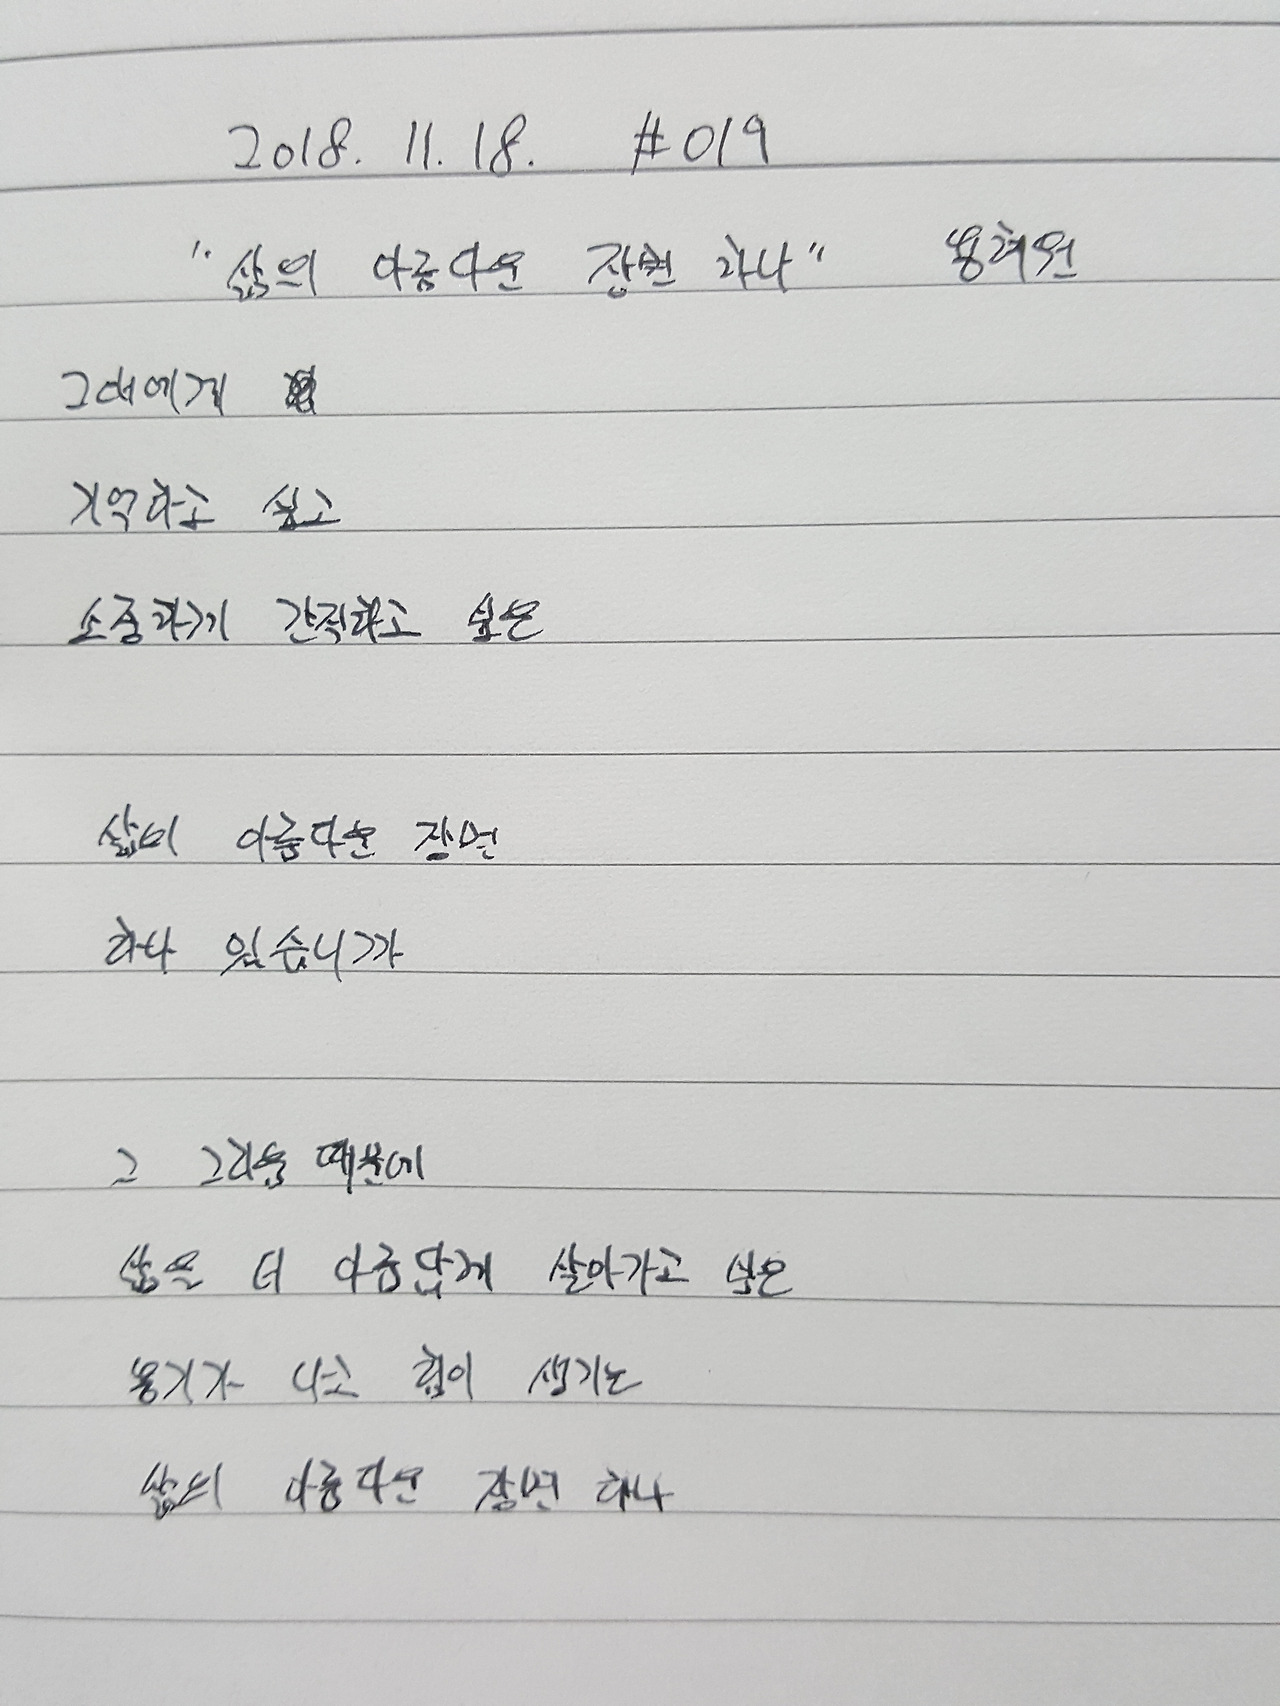 2018. 11. 18. #019
"삶의 아름다운 장면 하나" 용혜원
그대에게
기억하고 싶고
소중하게 간직하고 싶은
삶의 아름다운 장면
하나 있습니까
그 그리움 때문에
삶을 더 아름답게 살아가고 싶은
용기가 나고 힘이 생기는
삶의 아름다운 장면 하나